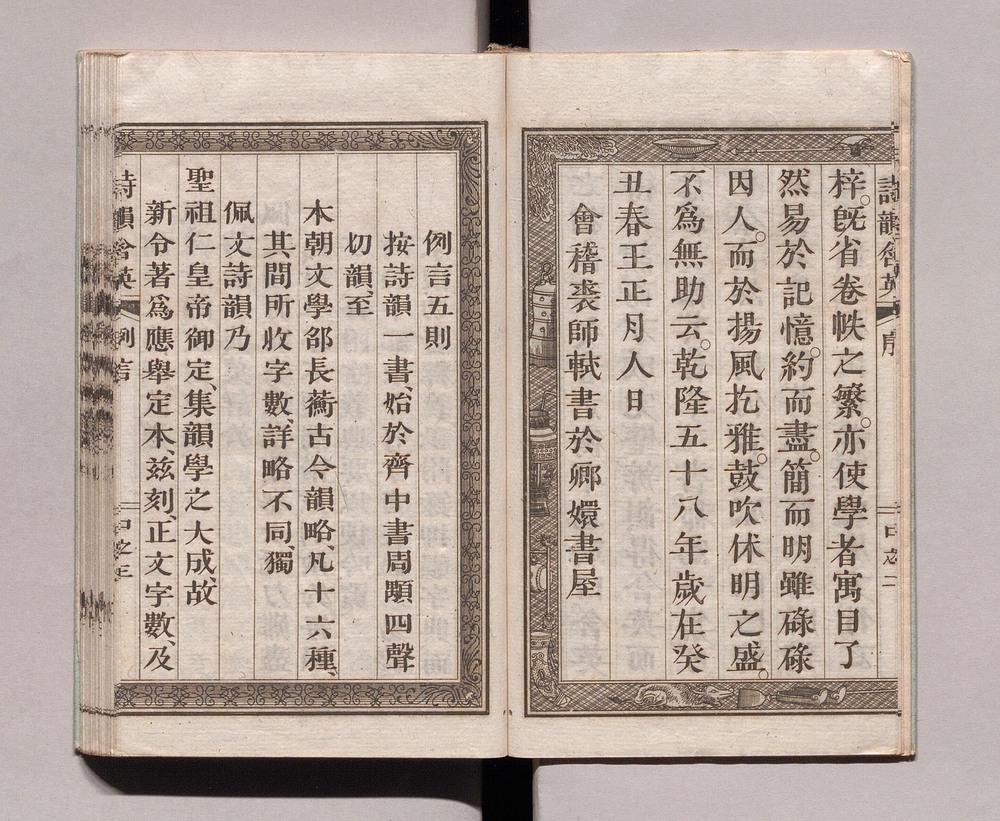 詩韻含英 序 口之二
梓。旣省卷帙之繁。亦使學者寓目了
然易於記憶。約而盡。簡而明雖碌碌
因人。而於揚風扢雅。鼓吹休明之盛。
不爲無助云。乾隆五十八年歲在癸
丑春王正月人日
會稽裘師軾書於鄉嬛書屋
例言五則
按詩韻一書、始於齊中書周顒四聲
切韻、至
本朝文學邵長蘅古今韻略、凡十六種、
其間所收字數、詳略不同、獨
佩文詩韻乃
聖祖仁皇帝御定、集韻學之大成、故
新令著爲應舉定本、兹刻、正文字數、及
詩韻含英 例言 口之三